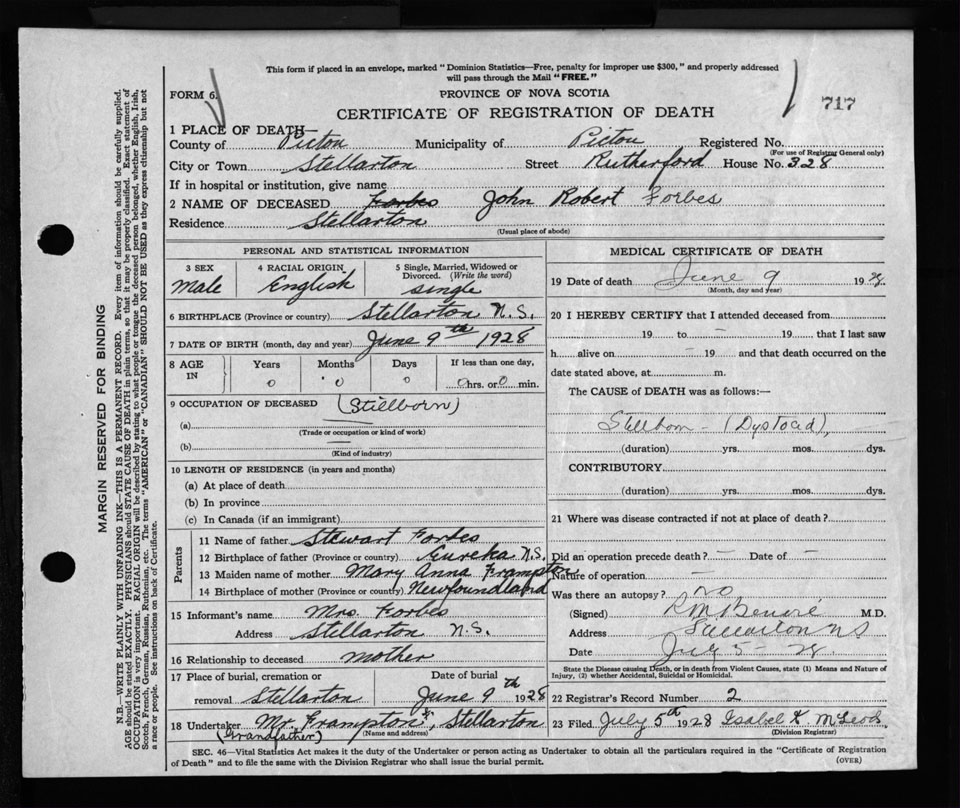 This form if placed in an envelope, marked "Dominion Statistics—Free, penalty for improper use $300," and properly addressed
will pass through the Mail "FREE."
FORM 6.
PROVINCE OF NOVA SCOTIA
717
CERTIFICATE OF REGISTRATION OF DEATH
1 PLACE OF DEATH—
County of Picton Municipality of Picton Registered No.
(For use of Registrar General only)
City or Town Stellarton Street Rutherford House No. 328
If in hospital or institution, give name
2 NAME OF DECEASED Forbes John Robert Forbes
Residence Stellarton
(Usual place of abode)
PERSONAL AND STATISTICAL INFORMATION
3 SEX Male
4 RACIAL ORIGIN English
5 Single, Married, Widowed or Divorced. (Write the word) single
6 BIRTHPLACE (Province or country) Stellarton N.S.
7 DATE OF BIRTH (month, day and year) June 9th 1928
8 AGE IN Years 0 Months 0 Days 0 If less than one day, 0 hrs. or 0 min.
9 OCCUPATION OF DECEASED (Stillborn)
(a)
(Trade or occupation or kind of work)
(b)
(Kind of industry)
10 LENGTH OF RESIDENCE (in years and months)
(a) At place of death
(b) In province
(c) In Canada (if an immigrant)
Parents
11 Name of father Stewart Forbes
12 Birthplace of father (Province or country) Eureka N.S.
13 Maiden name of mother Mary Anna Frampton
14 Birthplace of mother (Province or country) Newfoundland
15 Informant's name Mrs. Forbes
Address Stellarton N.S.
16 Relationship to deceased mother
17 Place of burial, cremation or removal Stellarton
Date of burial June 9th 1928
18 Undertaker Mr. Frampton, Stellarton
(Grandfather) (Name and address)
MEDICAL CERTIFICATE OF DEATH
19 Date of death June 9 1928
(Month, day and year)
20 I HEREBY CERTIFY that I attended deceased from
19 to — 19 that I last saw
h alive on — 19 and that death occurred on the
date stated above, at m.
The CAUSE of DEATH was as follows:—
Stillborn — (Dystocia)
(duration) yrs. mos. dys.
CONTRIBUTORY
(duration) yrs. mos. dys.
21 Where was disease contracted if not at place of death?
Did an operation precede death? — Date of —
Nature of operation —
Was there an autopsy? no
(Signed) M.D.
Address Stellarton NS
Date July 5 - 28
State the Disease causing Death, or in death from Violent Causes, state (1) Means and Nature of
Injury, (2) whether Accidental, Suicidal or Homicidal.
22 Registrar's Record Number 2
23 Filed July 5th 1928 Isabel K McLeod
(Division Registrar)
SEC. 46—Vital Statistics Act makes it the duty of the Undertaker or person acting as Undertaker to obtain all the particulars required in the "Certificate of Registration
of Death" and to file the same with the Division Registrar who shall issue the burial permit.
(OVER)
MARGIN RESERVED FOR BINDING
N.B.—WRITE PLAINLY WITH UNFADING INK—THIS IS A PERMANENT RECORD. Every item of information should be carefully supplied.
AGE should be stated EXACTLY. PHYSICIANS should STATE CAUSE OF DEATH in plain terms, so that it may be properly classified. Exact statement of
OCCUPATION is very important. RACIAL ORIGIN will be described by stating to what people or tongue the deceased person belonged, whether English, Irish,
Scotch, French, German, Russian, Ruthenian, etc. The terms "AMERICAN" or "CANADIAN" SHOULD NOT BE USED as they express citizenship but not
a race or people. See instructions on back of Certificate.